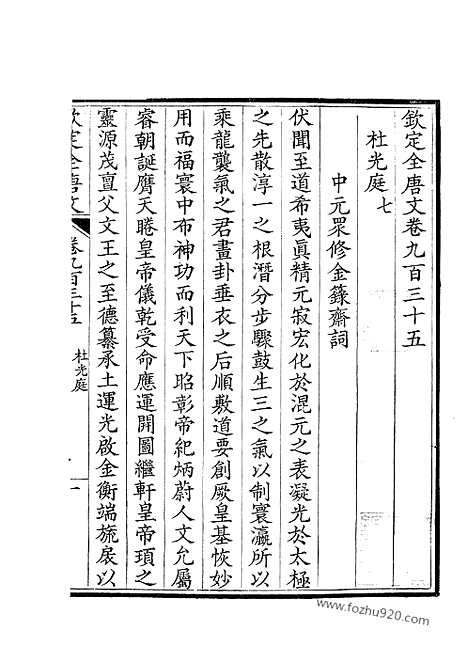 欽定全唐文卷九百三十五
杜光庭七
中元眾修金籙齋詞
伏聞至道希夷眞精元寂宏化於混元之表凝光於太極
之先散淳一之根潛分步驟鼓生三之氣以制寰瀛所以
乘龍襲氣之君畫卦垂衣之后順敷道要創厥皇基恢妙
用而福寰中布神功而利天下昭彰帝紀炳蔚人文允屬
睿朝誕膺天睠皇帝儀乾受命應運開圖繼軒皇帝頊之
靈源茂亶父文王之至德纂承土運光啟金衡端旒扆以
欽定全唐文
卷九百三十五
杜光庭
一
www.fozhu920.com